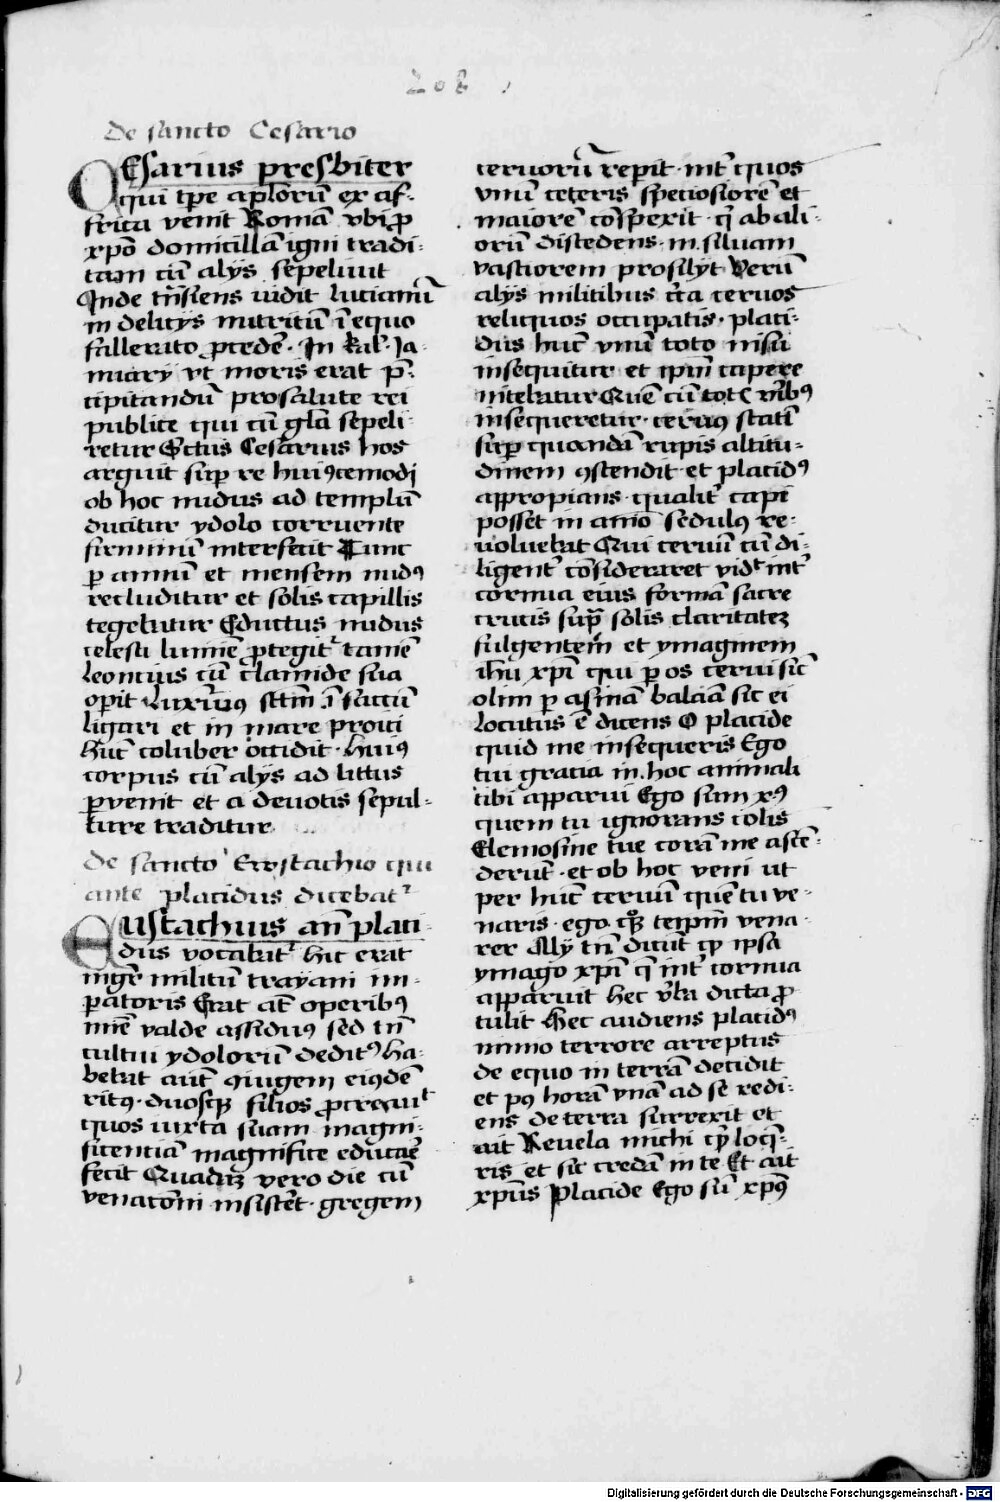 208
de sancto Cesario
CEsarius presbiter
qui tp̄e apl̄orū ex af-
frica venit Romā vbi p̱
xpō domicillā igni tradi-
tam cū alijs sepeliuit
Inde trn̄siens uidit lucianū
in delicijs nutritū ī equo
fallerato ꝓcedē. In kal̄. Ia-
nuarij vt moris erat p̄-
cipitandū pro salute rei
publice qui cū gl̄a sepeli-
retur Sctus Cesarius hos
arguit suꝑ re huiꝰcemodi
ob hoc nudus ad templū
ducitur ydolo corruente
firminū interfecit Tunc
ꝑ annū et mensem nudꝰ
recluditur et solis capillis
tegebatur Eductus nudus
celesti lumīe ꝓtegitr̄ tamē
Leoncius cū clamide sua
opit Luxuriꝰ sctm̄ ī saccū
ligari et in mare proici
hūc coluber occidit. huiꝰ
corpus cū alijs ad littus
ꝑvenit et a deuotis sepul-
ture traditur
de sancto Eustachio qui
ante placidus dicebatr̄
EUstachius an̄ placi-
dus vocabatr̄ hic erat
mgr̄ militū trayani im-
ꝑatoris Erat at̄ operibꝰ
mīe valde assiduꝰ sed tn̄
cultui ydolorū deditꝰ ha-
bebat aut̄ ꝯiugem eiꝰdē
ritꝰ. duosqꝫ filios ꝓcreauit
quos iuxta suam magni-
ficentiā magnifice educaē
fecit Quadā vero die cū
venacōni insistet̄. gregem
ceruorū repit. int̄ quos
vnū ceteris speciosiorē et
maiorē cōspexit. q̄ ab ali-
orū discedens. in siluam
vastiorem prosilijt Verū
alijs militibus cr̄ca ceruos
reliquos occupatis. placi-
dus hūc vnū toto nisu
insequitur et ip̄m capere
nitebatur Quē cū totꝭ virib
insequeretur. ceruꝰ statī
suꝑ quandā rupis altitu-
dinem ꝯscendit. et placidꝰ
appropians. qualit̄ capi
posset in aīo sedulꝰ re-
uoluebat Qui ceruū cū di-
ligent̄ cōsideraret vidt̄ int̄
cornua eius formā sacre
crucis supra solis claritatēz
fulgentem et ymaginem
ih̄u xp̄i qui ꝑ os cerui sic̄
olim ꝑ asinā balaā sic ei
locutus ē dicens O placide
quid me insequeris Ego
tui gracia in hoc animali
tibi apparui Ego sum xꝰ
quem tu ignorans colis
Elemosine tue corā me ascē-
derūt. et ob hoc veni ut
per hūc ceruū quē tu ve-
naris. ego qꝫ teip̄m vena-
rer Alij tn̄ dicūt qͥ ipsa
ymago xp̄i q̄ int̄ cornua
apparuit hec v̄ba dicta ꝓ
tulit Hec audiens placidꝰ
nimio terrore arreptus
de equo in terrā decidit
et pꝰ horā vnā ad se redi-
ens de terra surrexit et
ait Reuela michi qͥ loq̄-
ris et sic credā in te Et ait
xp̄us Placide Ego sū xp̄ꝰ
Digitalisierung gefördert durch die Deutsche Forschungsgemeinschaft - DFG